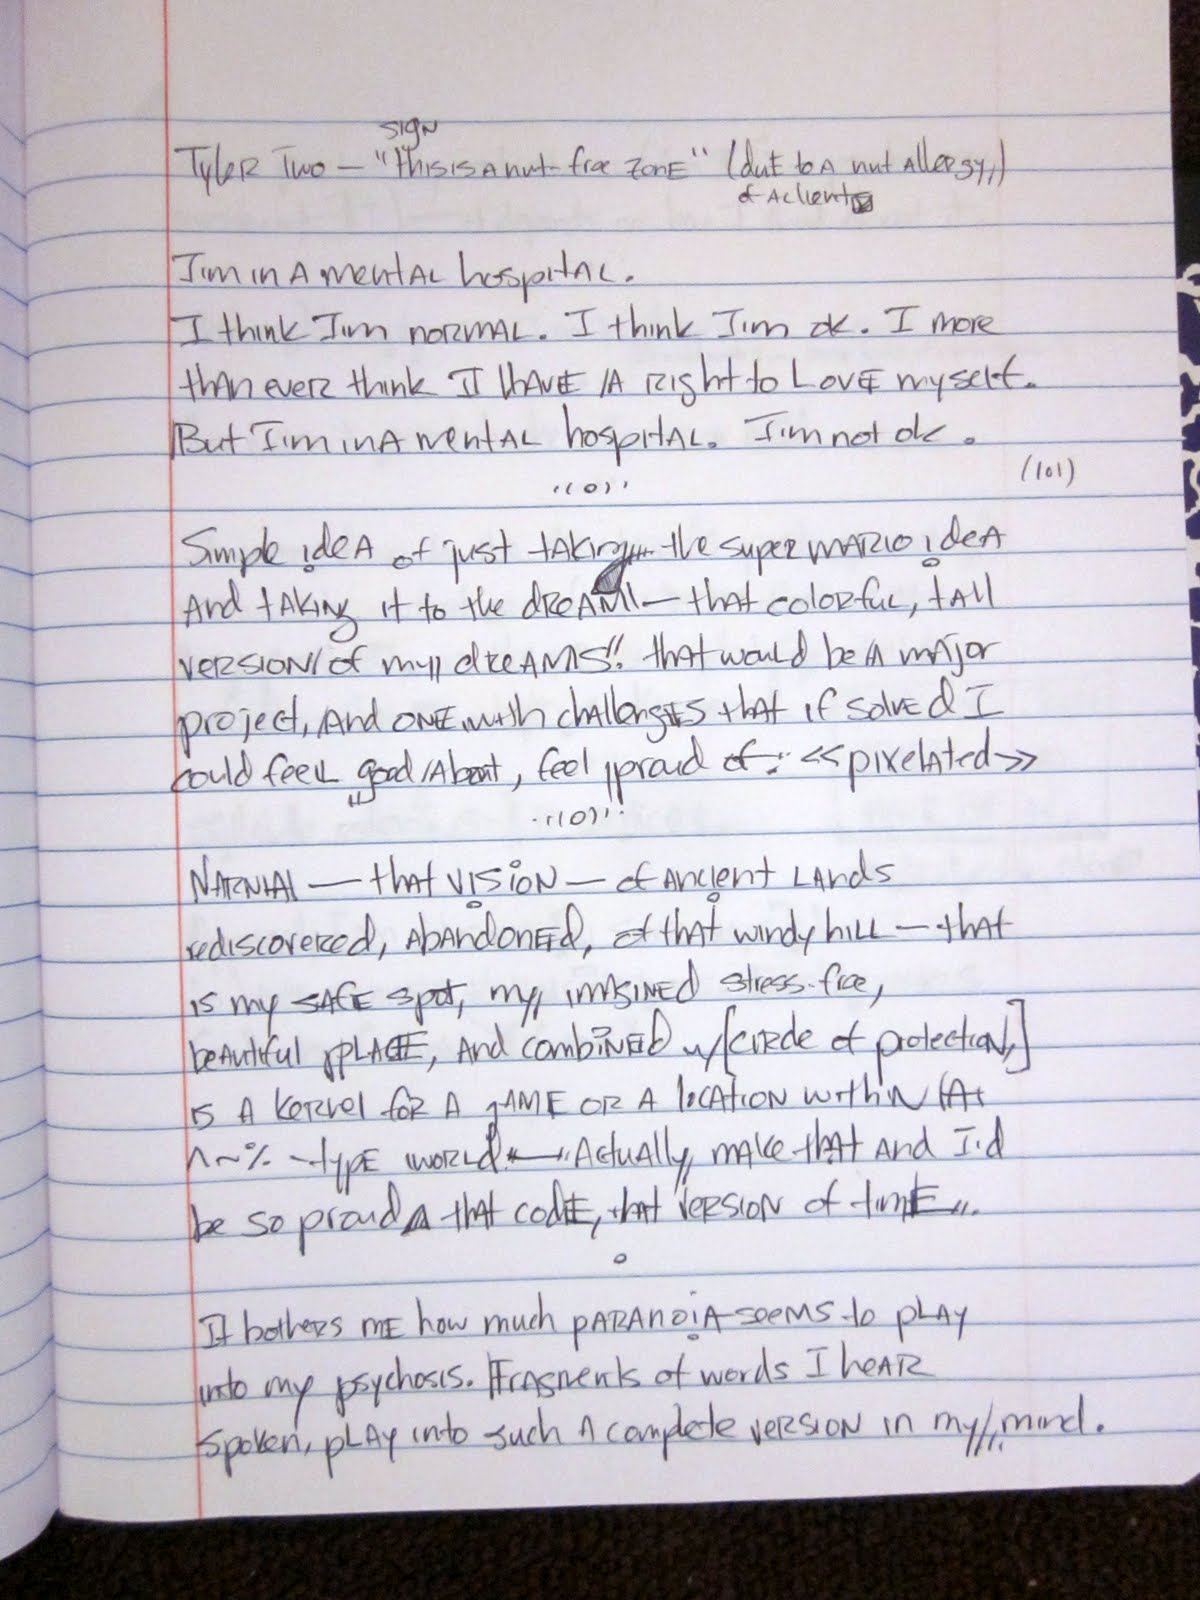 sign
Tyler Two — "This is a nut-free zone" (due to a nut allergy,)
of a client
I'm in a mental hospital.
I think I'm normal. I think I'm ok. I more
than ever think I have a right to love myself.
But I'm in a mental hospital. I'm not ok.
(101)
Simple idea of just taking the super mario idea
And taking it to the dream — that colorful, tall
version of my dreams!! that would be a major
project, and one with challenges that if solved I
could feel good about, feel proud of: <<pixelated>>
Narnia — that vision — of ancient lands
rediscovered, abandoned, of that windy hill — that
is my safe spot, my imagined stress-free,
beautiful place, and combined w/[circle of protection,]
is a kernel for a game or a location within (a
^~% - type world. Actually, make that and I'd
be so proud that code, that version of time...
It bothers me how much paranoia seems to play
into my psychosis. Fragments of words I hear
spoken, play into such a complete version in my mind.